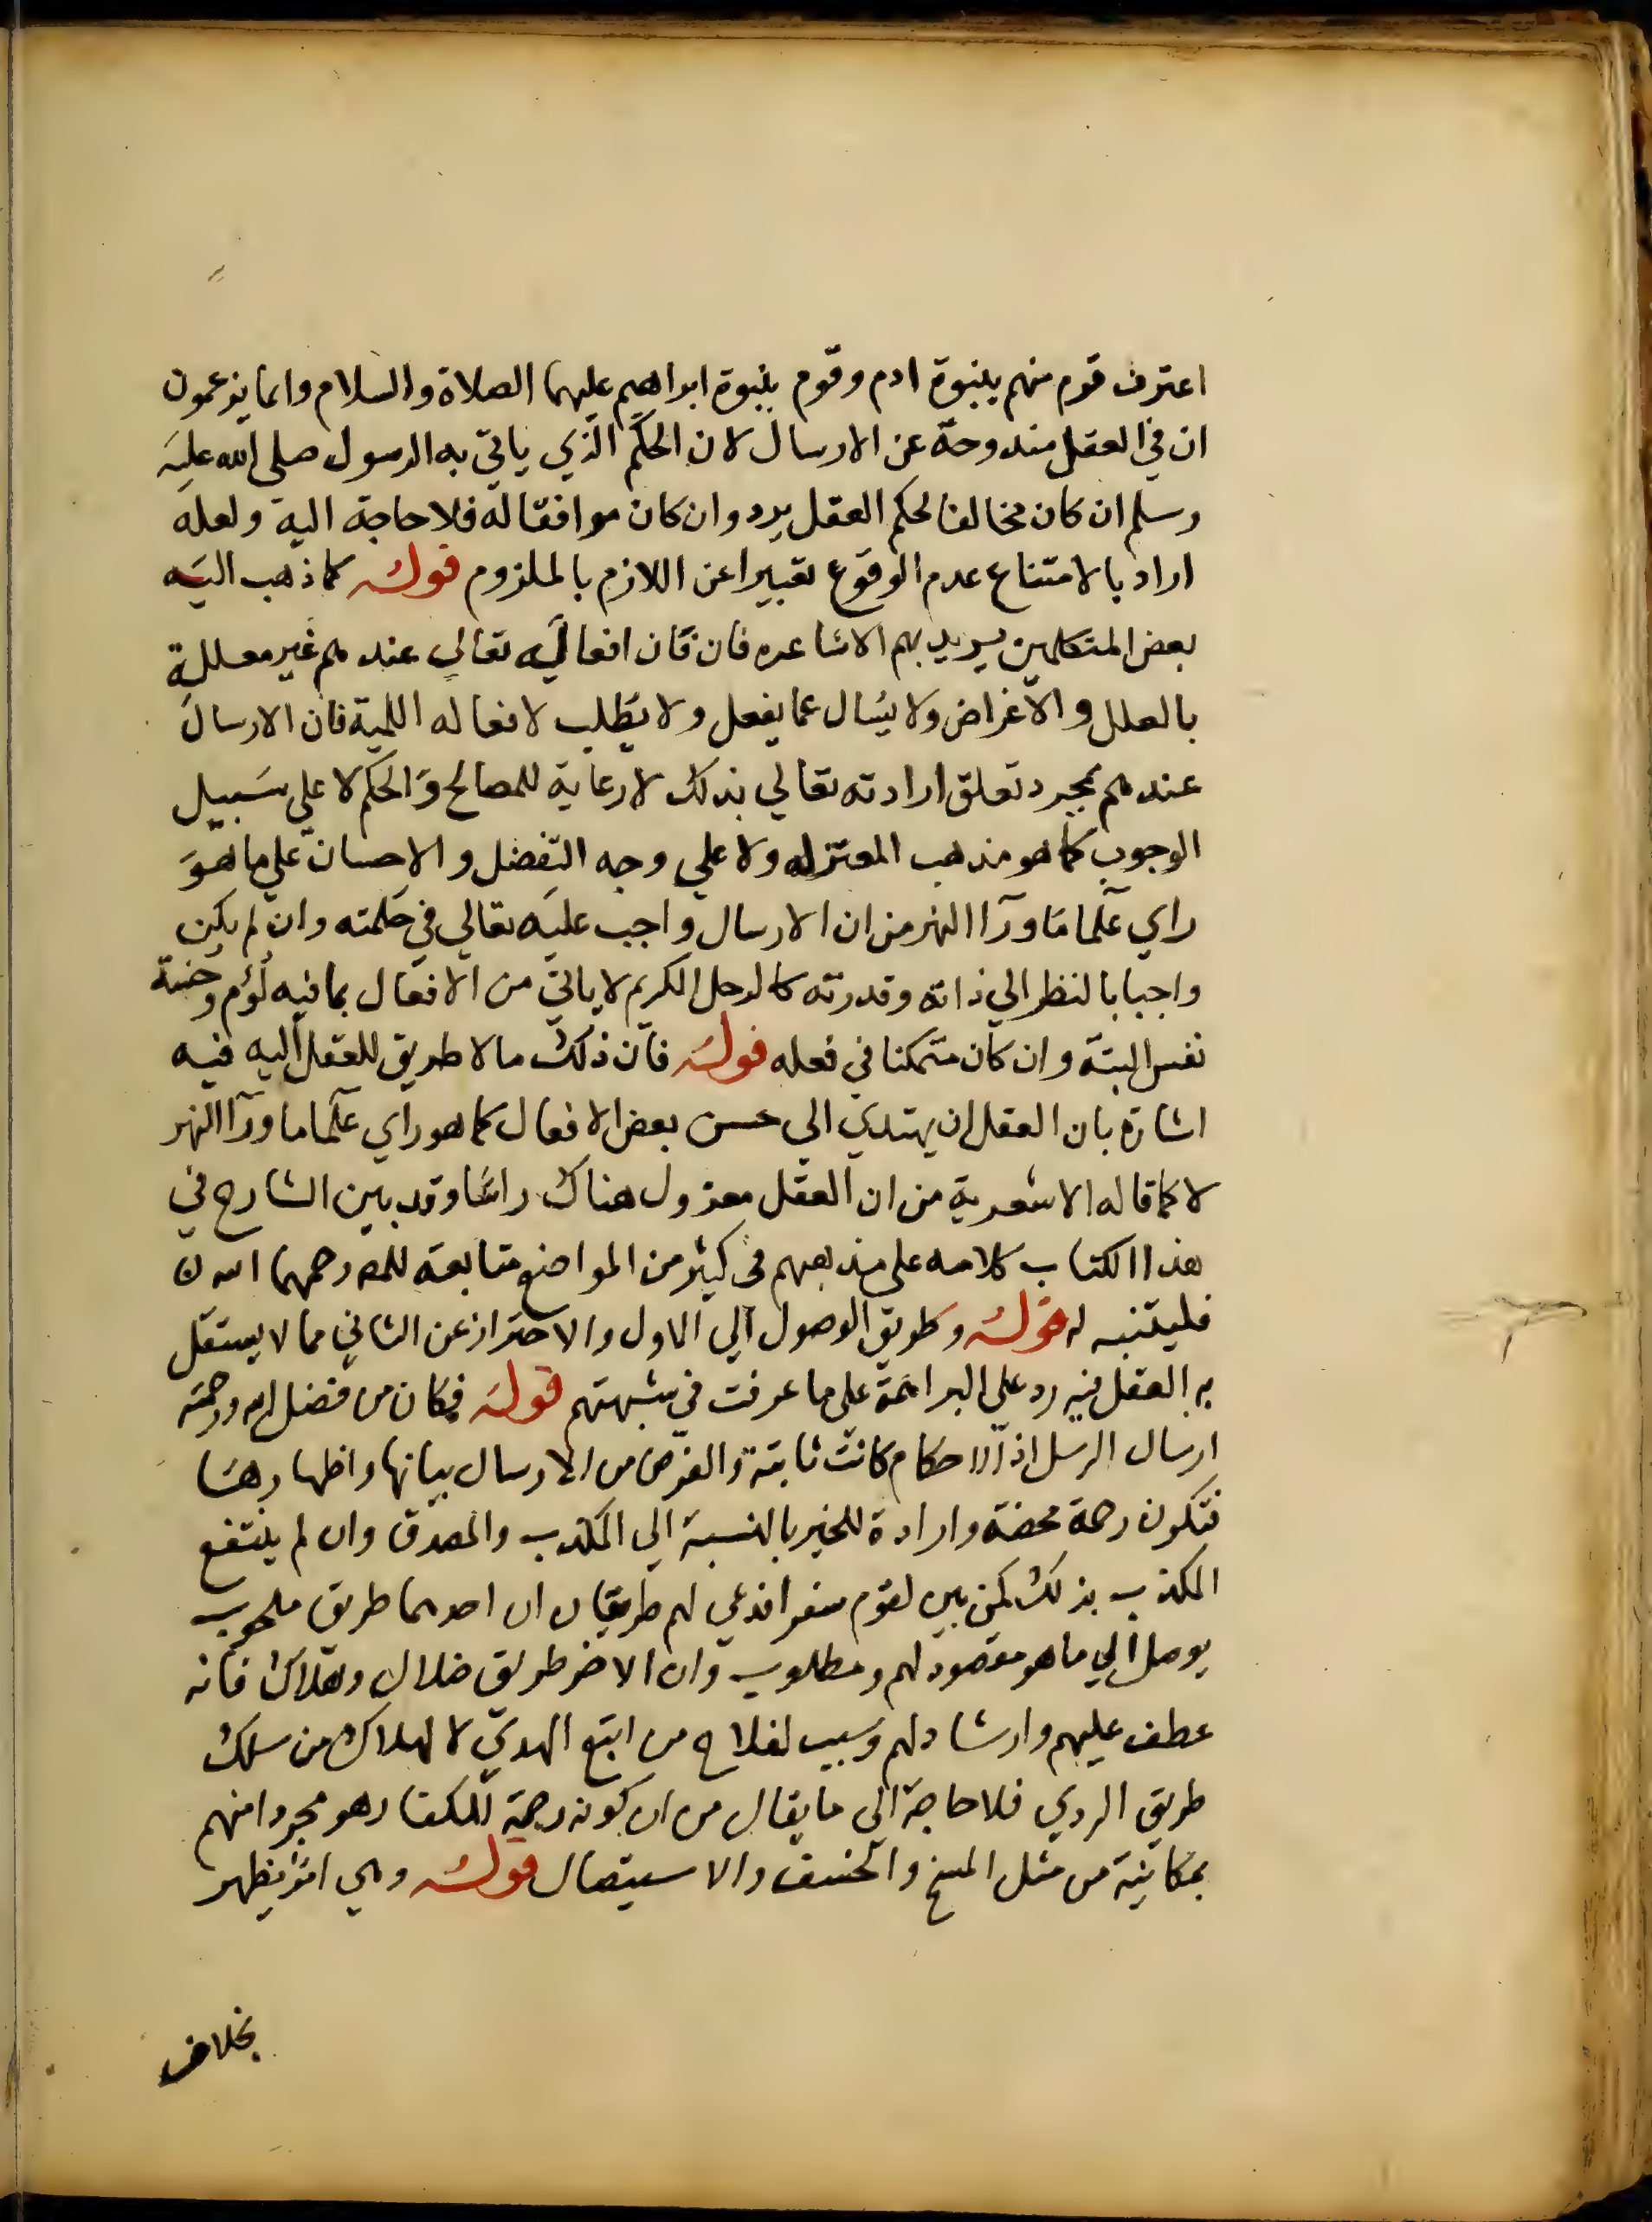 اعترف قوم منهم بنبوة ادم وقوم بنبوة ابراهيم عليهما الصلاة والسلام وانما يزعمون
ان في العقل مندوحة عن الارسال لان الحكم الذي ياتي به الرسول صلى الله عليه
وسلم ان كان مخالفا لحكم العقل يرد وان كان موافقا له فلا حاجة اليه ولعله
اراد بالامتناع عدم الوقوع تعبيرا عن اللازم بالملزوم قوله كما ذهب اليه
بعض المتكلمين يريد بهم الاشاعره فان فان افعاله تعالي عندهم غير معللة
بالعلل والاغراض ولا يسال عما يفعل ولا يطلب لافعاله اللمية فان الارسال
عندهم بمجرد تعلق ارادته تعالي بذلك لا رعاية للمصالح والحكم لا علي سبيل
الوجوب كما هو مذهب المعتزله ولا علي وجه التفضل والاحسان علي ما هو
راي علما ما ورآ النهر من ان الارسال واجب عليه تعالي في حكمته وان لم يكن
واجبا بالنظر الي ذاته وقدرته كالرجل الكريم لا ياتي من الافعال بما فيه لؤم وخسة
نفس البتة وان كان متمكنا في فعله قوله فان ذلك مما لا طريق للعقل اليه فيه
اشارة بان العقل ان يهتدي الي حسن بعض الافعال كما هو راي علما ما ورآ النهر
لا كما قاله الاشعرية من ان العقل معزول هناك راسا وقد بين الشارح في
هذا الكتاب كلامه علي مذهبهم في كثير من المواضع متابعة للمص رحمهما الله
فليتنبه له قوله وطريق الوصول الي الاول والاحتراز عن الثاني مما لا يستقل
به العقل فيه رد علي البراهمة علي ما عرفت في شبهتهم قوله فكان من فضل الله ورحمته
ارسال الرسل اذ الاحكام كانت ثابتة والغرض من الارسال بيانها واظهارها
فتكون رحمة محضة وارادة للخير بالنسبة الي المكذب والمصدق وان لم ينتفع
المكذب بذلك كمن بين لقوم سفر اذ عي لهم طريقان ان احدهما طريق ملحوب
يوصل الي ما هو مقصود لهم ومطلوب وان الاخر طريق ضلال وهلاك فانه
عطف عليهم وارشاد لهم وسبب لفلاح من اتبع الهدي لا لهلاك من سلك
طريق الردي فلا حاجة الي ما يقال من ان كونه رحمة للكفار هو مجرد امنهم
بمكانيته من مثل المسخ والخسف والاستيصال قوله وهي امر يظهر
بخلاف